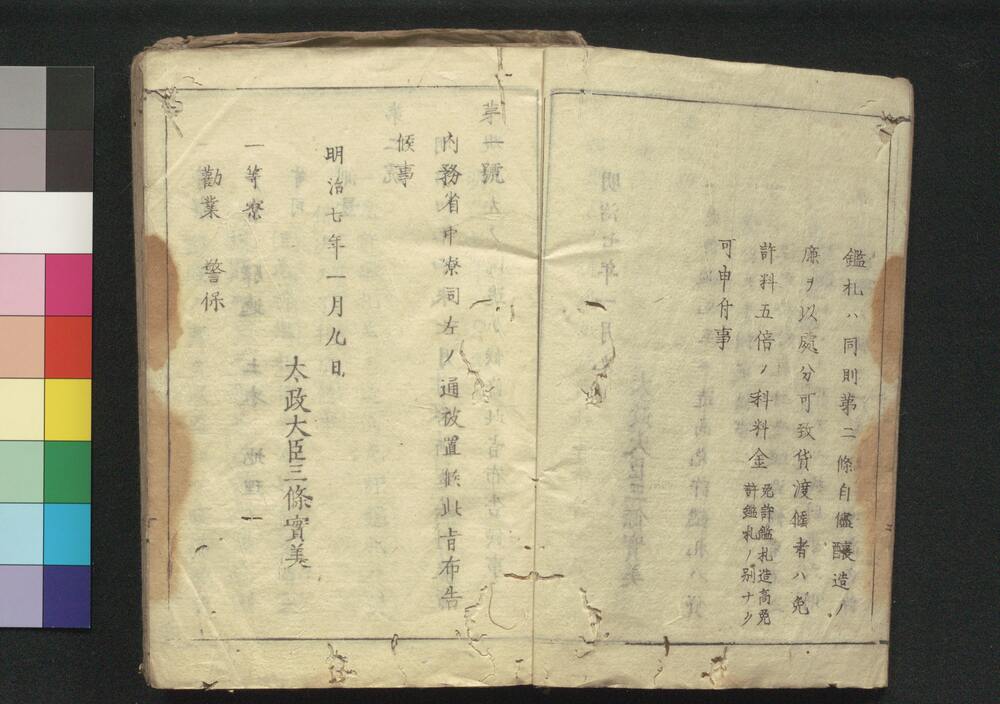 鑑札ハ同則第二條自儘醸造ノ
廉ヲ以處分可致貸渡候者ハ免
許料五倍ノ科料金免許鑑札造高免
許鑑札ノ別ナク
可申付事
第一號
內務省中寮司左ノ通被置候此旨布告
候事
明治七年一月九日
太政大臣三條實美
一等寮
勸業 警保